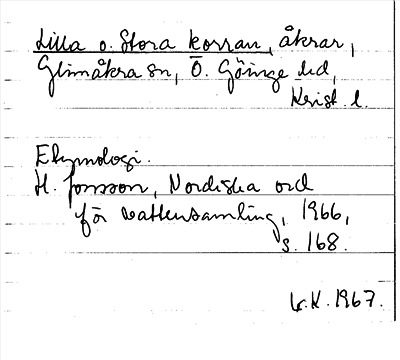 Lilla o. Stora korran, åkrar,
Glimåkra sn, Ö. Göinge hd,
Krist. l.
Etymologi.
H. Jonsson, Nordiska ord
för vattensamling, 1966,
s. 168.
G.H. 1967.